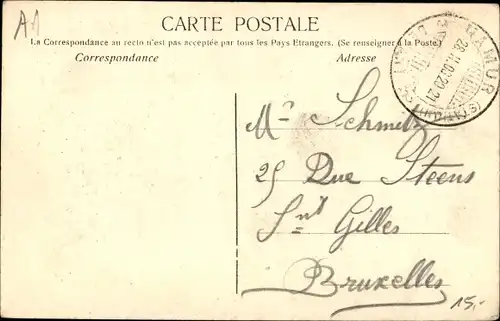 A1
CARTE POSTALE
La Correspondance au recto n'est pas acceptée par tous les Pays Etrangers. (Se renseigner à la Poste.)
Correspondance
Adresse
NAMUR (STATION)
Mr Schmitz
25 Rue Steens
Snt Gilles
Bruxelles
15.-